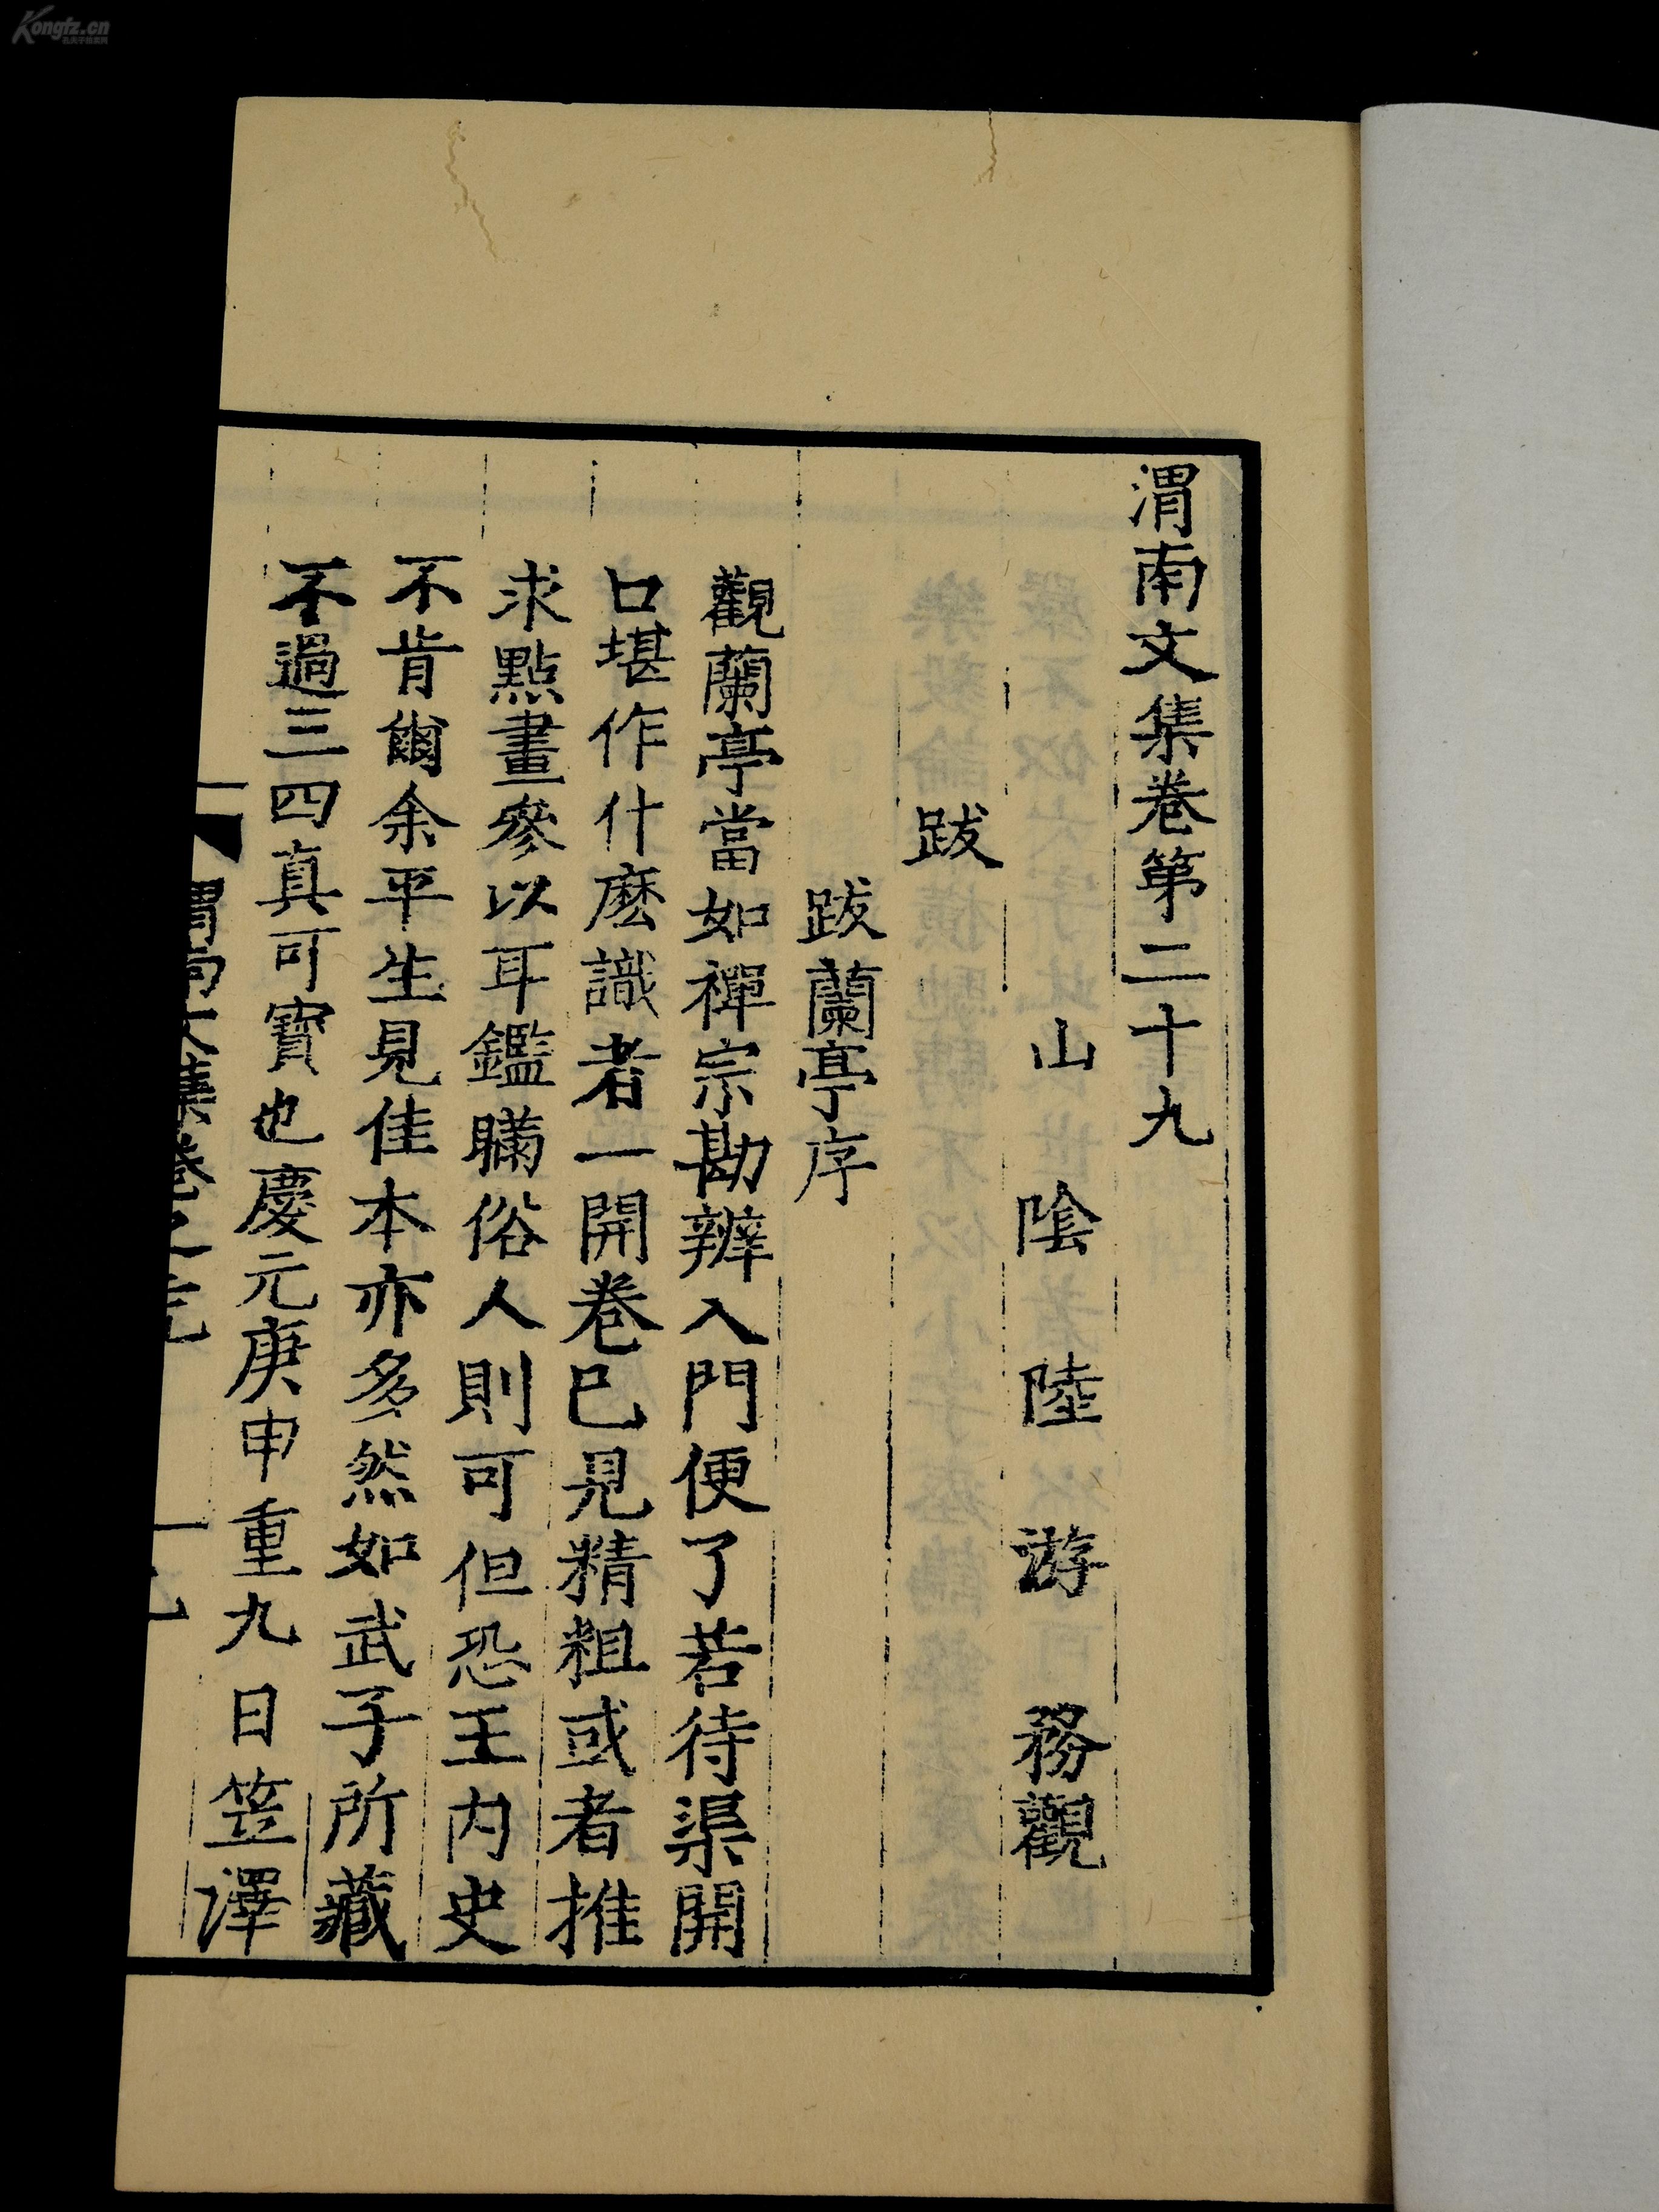 渭南文集卷第二十九
山陰陸游務觀
跋
跋蘭亭序
觀蘭亭當如禪宗勘辨入門便了若待渠開
口堪作什麽識者一開卷已見精粗或者推
求點畫參以耳鑑瞞俗人則可但恐王內史
不肯爾余平生見佳本亦多然如武子所藏
不過三四真可寳也慶元庚申重九日笠澤
Kongfz.cn